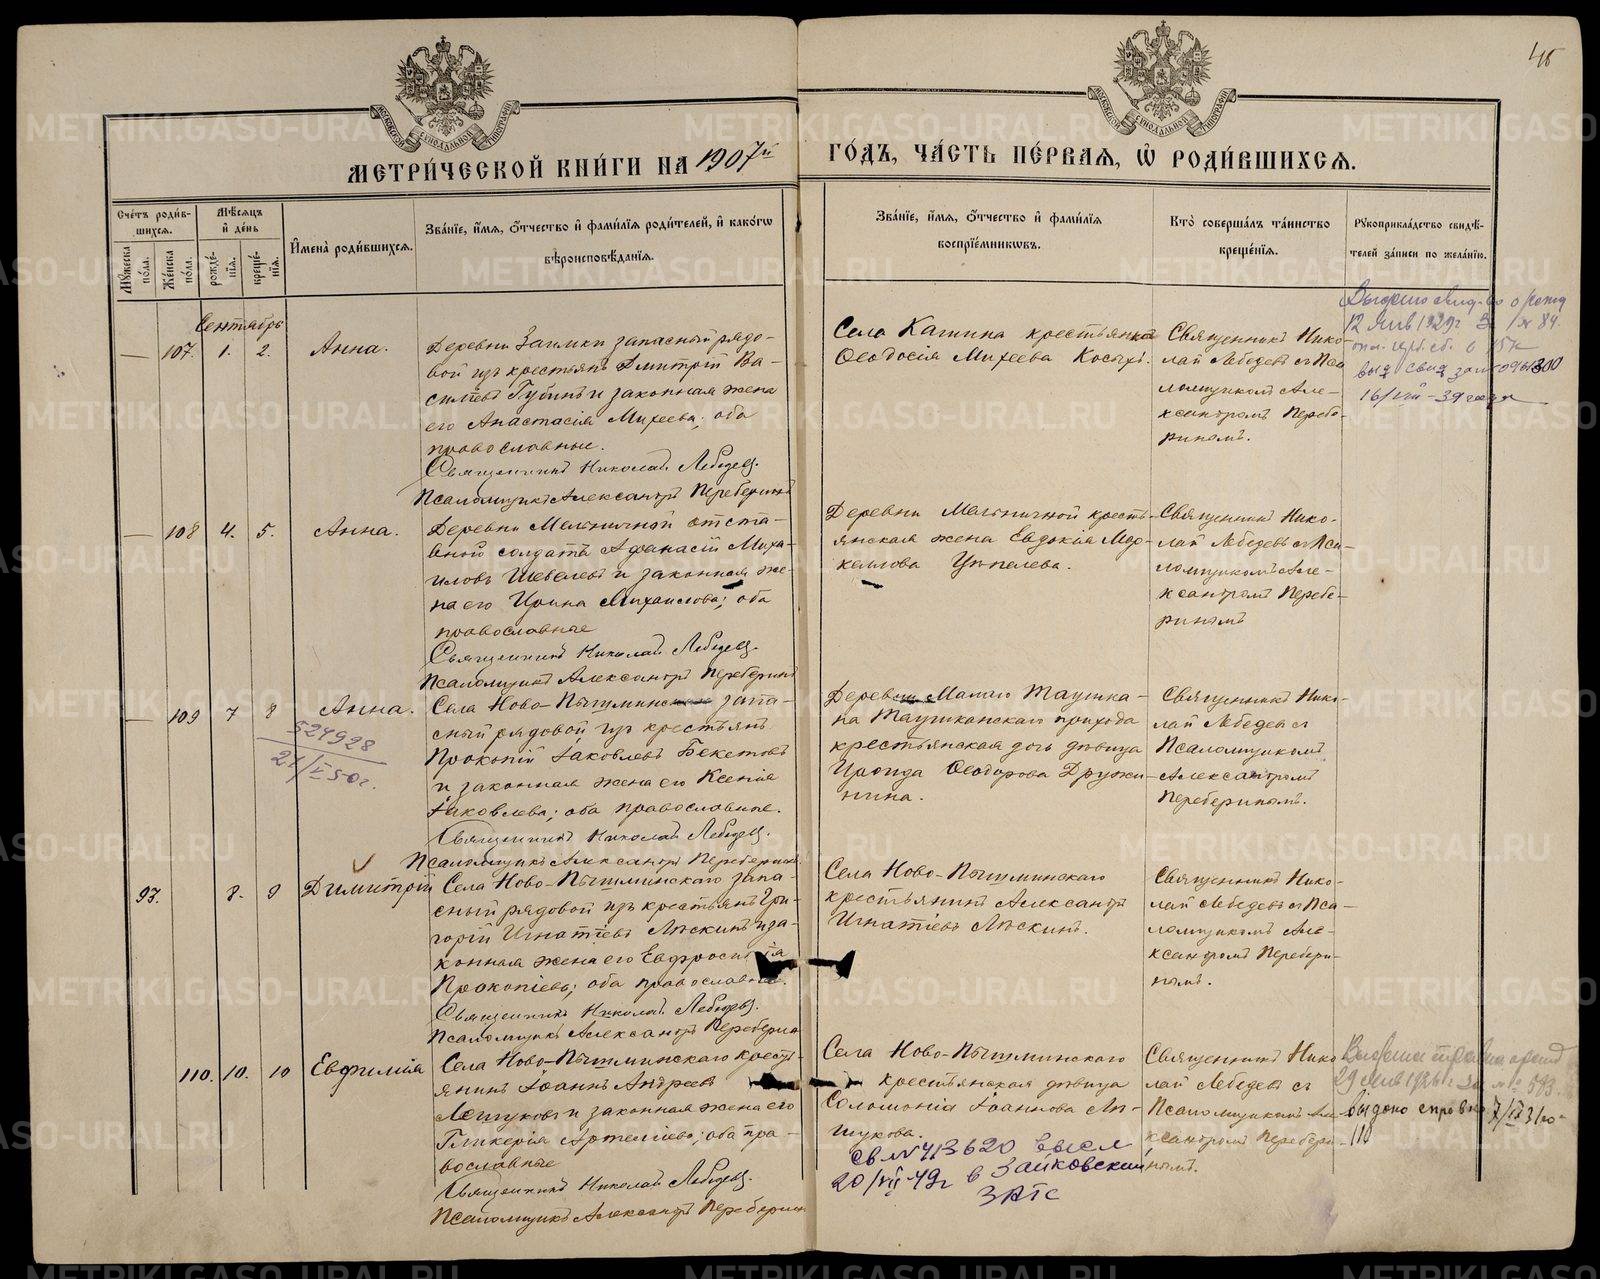 45
МЕТРИ́ЧЕСКОЙ КНИ́ГИ НА 1907й
ГО́ДЪ, ЧА́СТЬ ПЕ́РВАЯ, Ѡ РОДИ́ВШИХСЯ.
Сче́тъ роди́в-
шихся.
Мѣ́сяцъ
и де́нь
Му́жеска по́ла.
Же́нска по́ла.
рожде́-
нія.
креще́-
нія.
И҆мена̀ роди́вшихся.
Зва́ніе, и҆́мя, ѻ҆́тчество и҆ фами́лія роди́телей, и҆ како́гѡ
вѣроисповѣ́данія.
Зва́ніе, и҆́мя, ѻ҆́тчество и҆ фами́лія
воспріе́мникѡвъ.
Кто̀ соверша́лъ та́инство
креще́нія.
Рꙋкоприкла́дство свидѣ́-
телей за́писи по жела́нію.
Сентябрь
— 107. 1. 2.
Анна.
Деревни Заимки запасный рядо-
вой изъ крестьянъ Дмитрій Ва-
сильевъ Губинъ и законная жена
его Анастасія Михеева; оба
православные.
Священникъ Николай Лебедевъ.
Псаломщикъ Александръ Переберинъ
Села Кашина крестьянка
Ѳеодосія Михеева Косыхъ.
Священникъ Нико-
лай Лебедевъ съ Пса
ломщикомъ Але-
ксандромъ Перебе-
ринымъ.
12 Янв 1929г З № 84.
16/VIII-39 года
— 108 4. 5.
Анна.
Деревни Мельничной отста-
вной солдатъ Афанасій Миха-
иловъ Шевелевъ и законная же-
на его Ирина Михаилова; оба
православные
Священникъ Николай Лебедевъ.
Псаломщикъ Александръ Переберинъ
Деревни Мельничной кресть-
янская жена Евдокія Мар-
келлова Цепелева.
Священникъ Нико-
лай Лебедевъ съ Пса-
ломщикомъ Але-
ксандромъ Перебе-
ринымъ
— 109 7 8
Анна.
524928
21/V 50г.
Села Ново-Пышминска запа-
сный рядовой изъ крестьянъ
Прокопій Іаковлевъ Бекетовъ
и законная жена его Ксенія
Іаковлева; оба православные.
Священникъ Николай Лебедевъ.
Псаломщикъ Александръ Переберинъ
Деревни Малаго Таушка-
на Таушканскаго прихода
крестьянская дочь дѣвица
Ираида Ѳеодорова Дружи-
нина.
Священникъ Нико-
лай Лебедевъ съ
Псаломщикомъ
Александромъ
Переберинымъ.
97. 8. 9
Димитрій
Села Ново-Пышминскаго запа-
сный рядовой изъ крестьянъ Гри-
горій Игнатіевъ Лѣскинъ и за-
конная жена его Евфросинія
Прокопіева; оба православные.
Священникъ Николай Лебедевъ.
Псаломщикъ Александръ Переберинъ
Села Ново-Пышминскаго
крестьянинъ Александръ
Игнатіевъ Лѣскинъ.
Священникъ Нико-
лай Лебедевъ съ Пса-
ломщикомъ Але-
ксандромъ Перебери-
нымъ.
110. 10. 10
Евфимія
Села Ново-Пышминскаго кресть-
янинъ Іоаннъ Андреевъ
Лепиуковъ и законная жена его
Гликерія Артеміева; оба пра-
вославные
Священникъ Николай Лебедевъ.
Псаломщикъ Александръ Переберинъ
Села Ново-Пышминскаго
крестьянская дѣвица
Соломонія Іоаннова
Священникъ Нико
лай Лебедевъ съ
Псаломщикомъ Але-
ксандромъ Перебери-
нымъ.
29 Янв 1926г за № 593.
выдано справка 7/IX 31го-
110
св № 413620 высл
20/VII-49г в Зайковский
ЗАГС